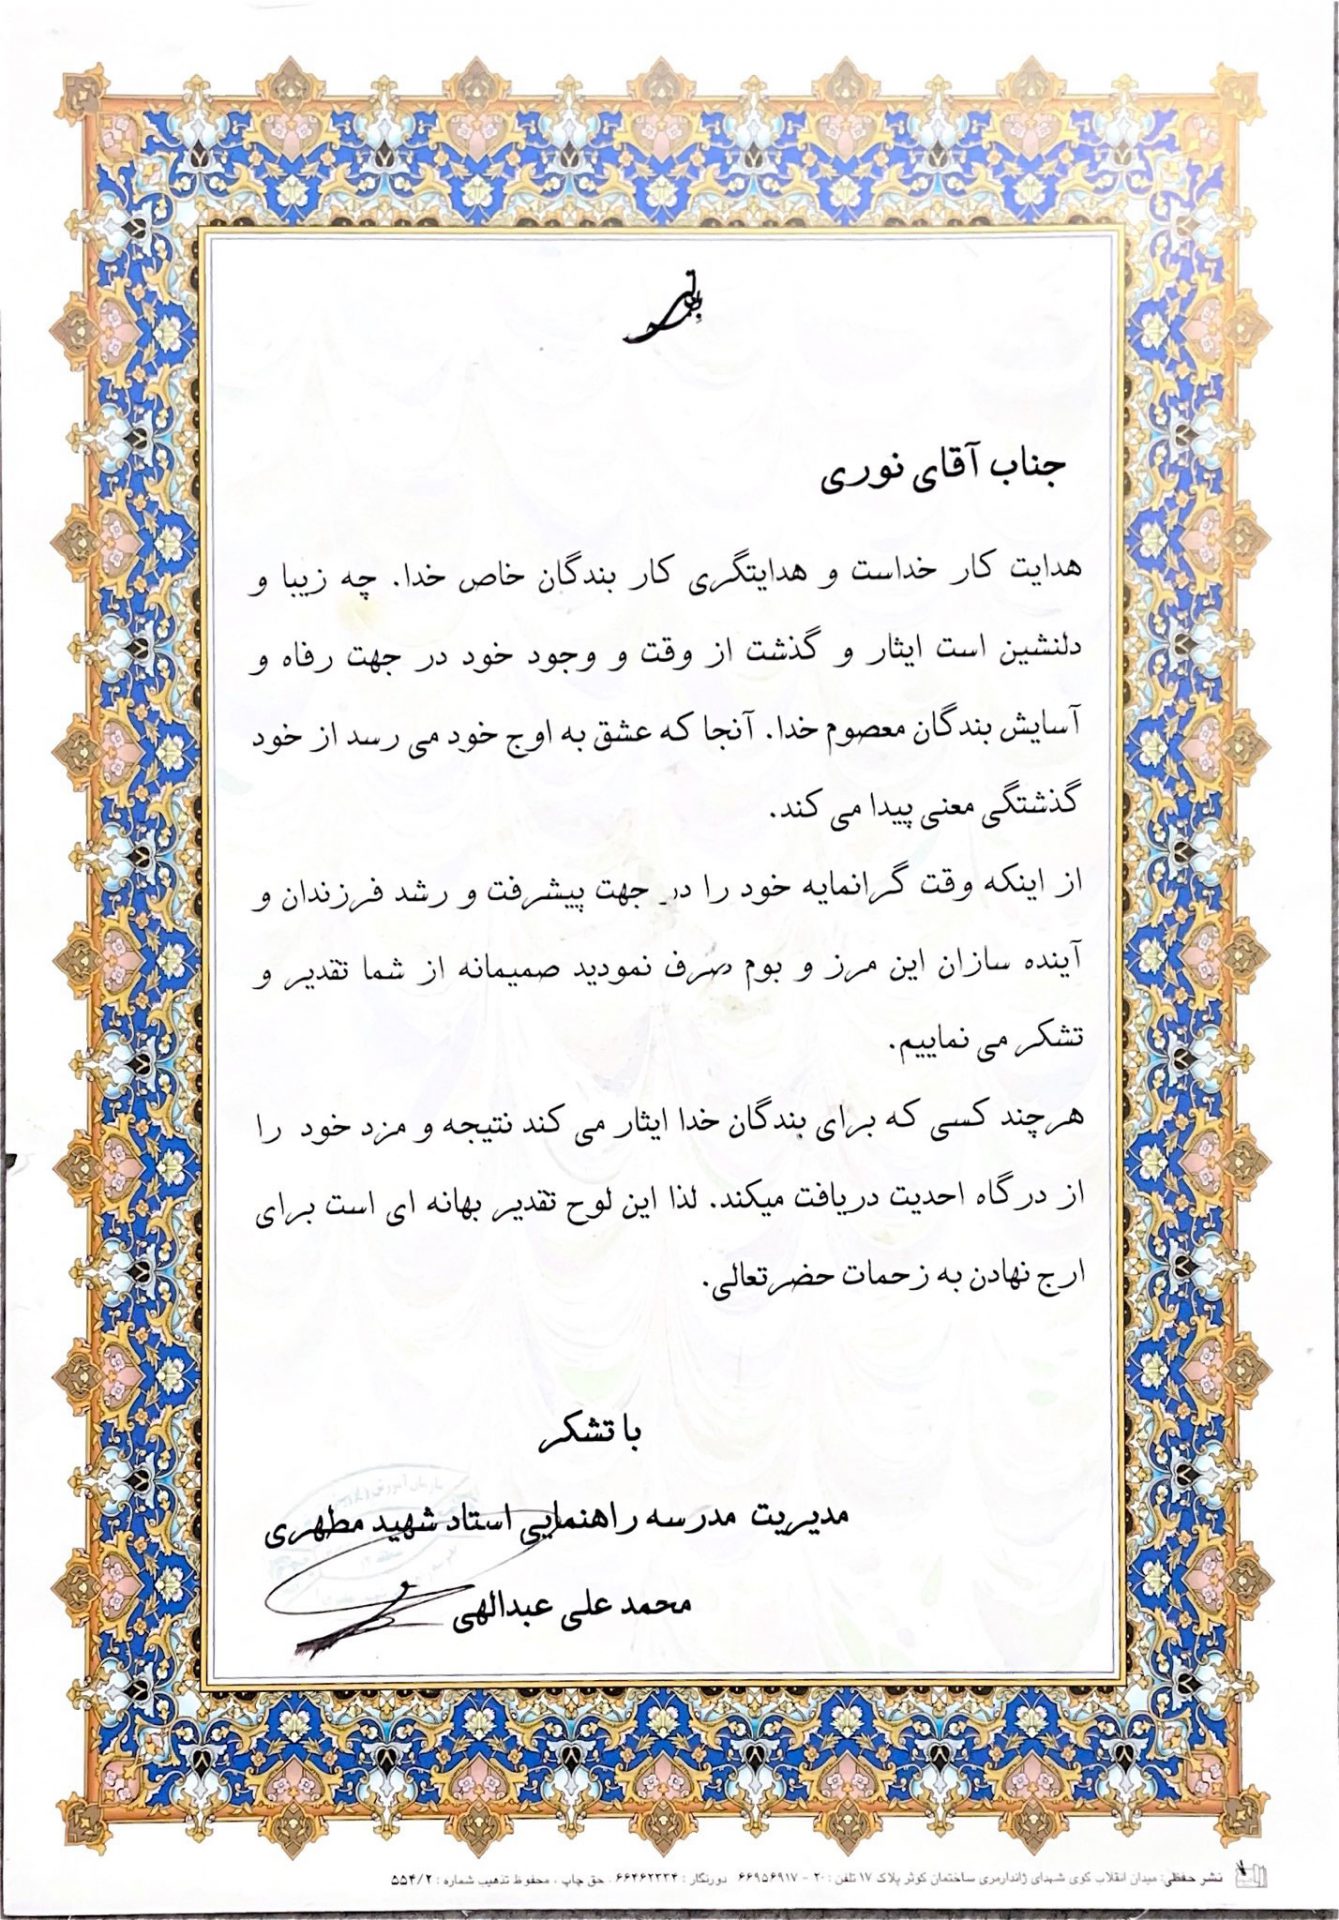 بسمه تعالی
جناب آقای نوری
هدایت کار خداست و هدایتگری کار بندگان خاص خدا. چه زیبا و
دلنشین است ایثار و گذشت از وقت و وجود خود در جهت رفاه و
آسایش بندگان معصوم خدا. آنجا که عشق به اوج خود می رسد از خود
گذشتگی معنی پیدا می کند.
از اینکه وقت گرانمایه خود را در جهت پیشرفت و رشد فرزندان و
آینده سازان این مرز و بوم صرف نمودید صمیمانه از شما تقدیر و
تشکر می نماییم.
هرچند کسی که برای بندگان خدا ایثار می کند نتیجه و مزد خود را
از درگاه احدیت دریافت میکند. لذا این لوح تقدیر بهانه ای است برای
ارج نهادن به زحمات حضرتعالی.
با تشکر
مدیریت مدرسه راهنمایی استاد شهید مطهری
محمد علی عبدالهی
نشر حفظی: میدان انقلاب کوی شهدای ژاندارمری ساختمان کوثر پلاک ۱۷ تلفن : ۲۰ - ۶۶۹۵۶۹۱۷ دورنگار : ۶۶۴۶۲۳۳۴ . حق چاپ ، محفوظ تذهیب شماره : ۵۵۴/۲